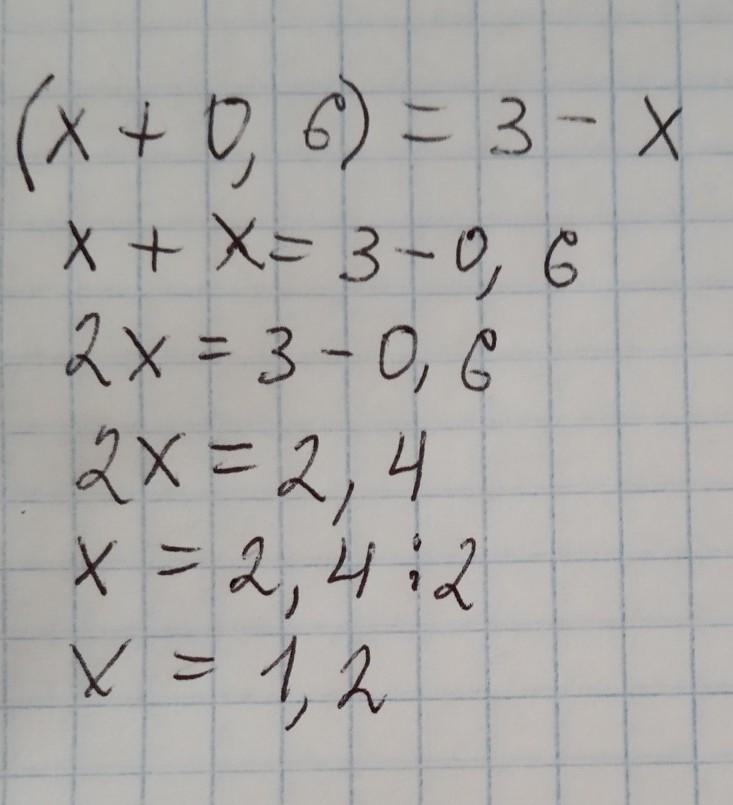 (x + 0,6) = 3 - x
x + x = 3 - 0,6
2x = 3 - 0,6
2x = 2,4
x = 2,4 : 2
x = 1,2